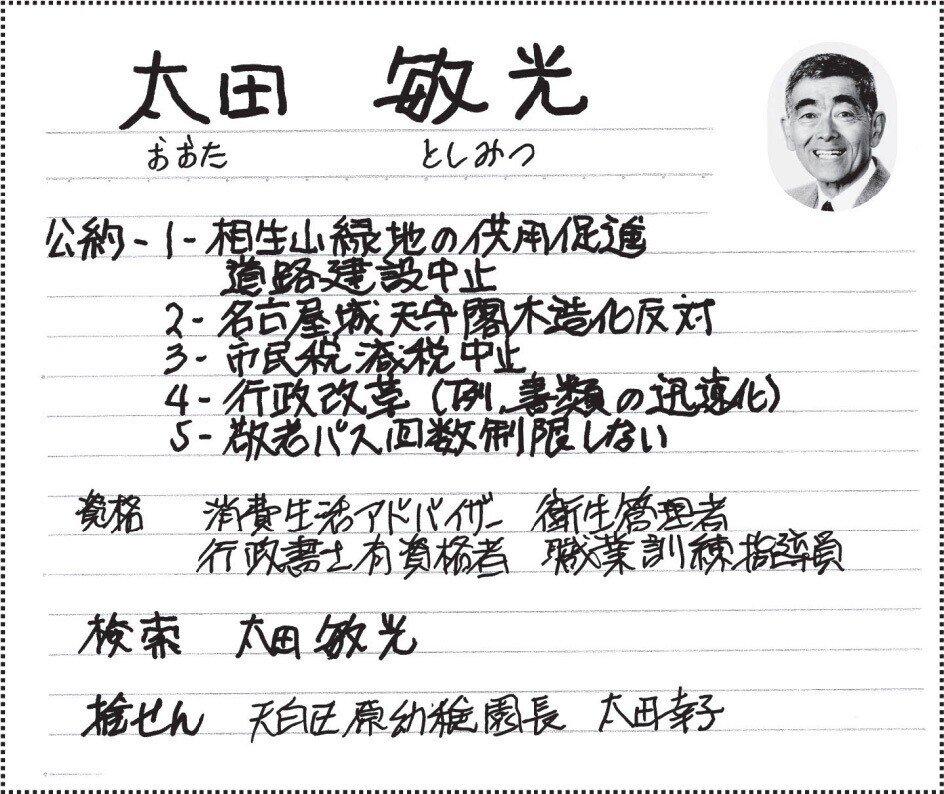 太田 敏光
おおた としみつ
公約-1-相生山緑地の供用促進
道路建設中止
2-名古屋城天守閣木造化反対
3-市民税減税中止
4-行政改革(例、書類の迅速化)
5-敬老パス回数制限しない
資格 消費生活アドバイザー 衛生管理者
行政書士有資格者 職業訓練指導員
検索 太田敏光
推せん 天白区原幼稚園長 太田幸子